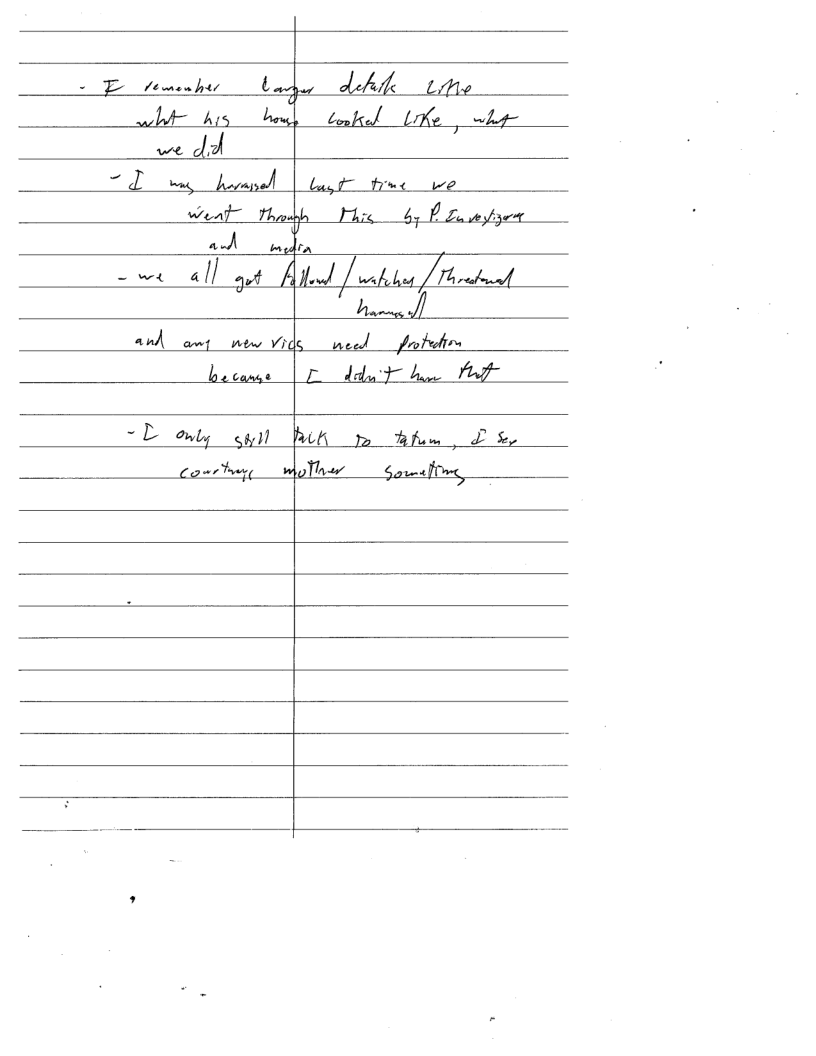 - I remember larger details like
what his house looked like, what
we did
- I was harassed last time we
went through this by P. Investigators
and media
- we all got followed/watched/threatened
harrassed
and any new vics need protection
because I didn't have that
- I only still talk to tatum, I see
courtneys mother sometimes